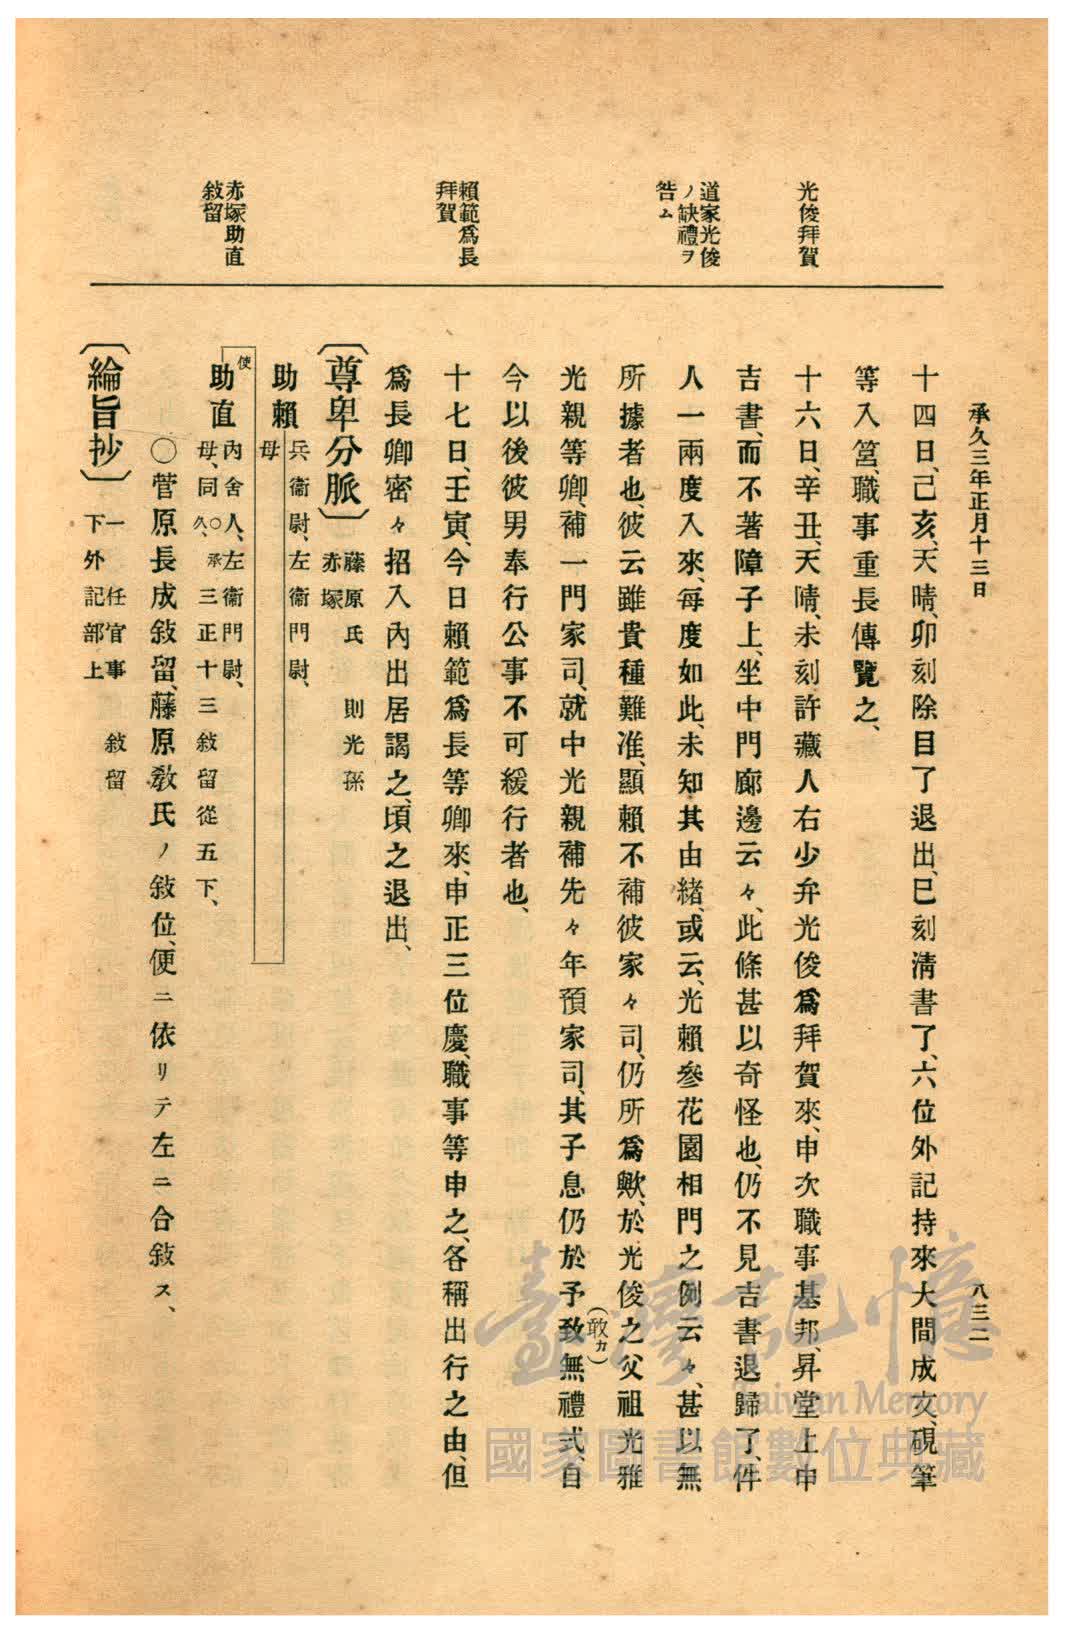 承久三年正月十三日
八三二
光俊拜賀
道家光俊
ノ缺禮ヲ
咎ム
賴範爲長
拜賀
赤塚助直
敍留
十四日、己亥、天晴、卯刻除目了退出、巳刻淸書了、六位外記持來大間成文、硯筆
等入筥、職事重長傳覽之、
十六日、辛丑、天晴、未刻許藏人右少弁光俊爲拜賀來、申次職事基邦、昇堂上申
吉書、而不著障子上、坐中門廊邊云々、此條甚以奇怪也、仍不見吉書退歸了、件
人一兩度入來、每度如此、未知其由緖、或云、光賴參花園相門之例云々、甚以無
所據者也、彼云雖貴種難准、顯賴不補彼家々司、仍所爲歟、於光俊之父祖光雅
光親等卿、補一門家司、就中光親補先々年預家司、其子息仍於予致無禮式、自
(敢カ)
今以後彼男奉行公事不可緩行者也、
十七日、壬寅、今日賴範爲長等卿來、申正三位慶、職事等申之、各稱出行之由、但
爲長卿密々招入內出居謁之、頃之退出、
〔尊卑分脈〕 藤原氏 則光孫
赤塚
助賴 兵衞尉、左衞門尉、
母
使
助直 內舍人、左衞門尉、
母、同 久、○承三正十三敍留從五下、
○菅原長成敍留、藤原敎氏ノ敍位、便ニ依リテ左ニ合敍ス、
〔綸旨抄〕 一任官事 敍留
下外記部上
臺灣記憶
Taiwan Memory
國家圖書館數位典藏